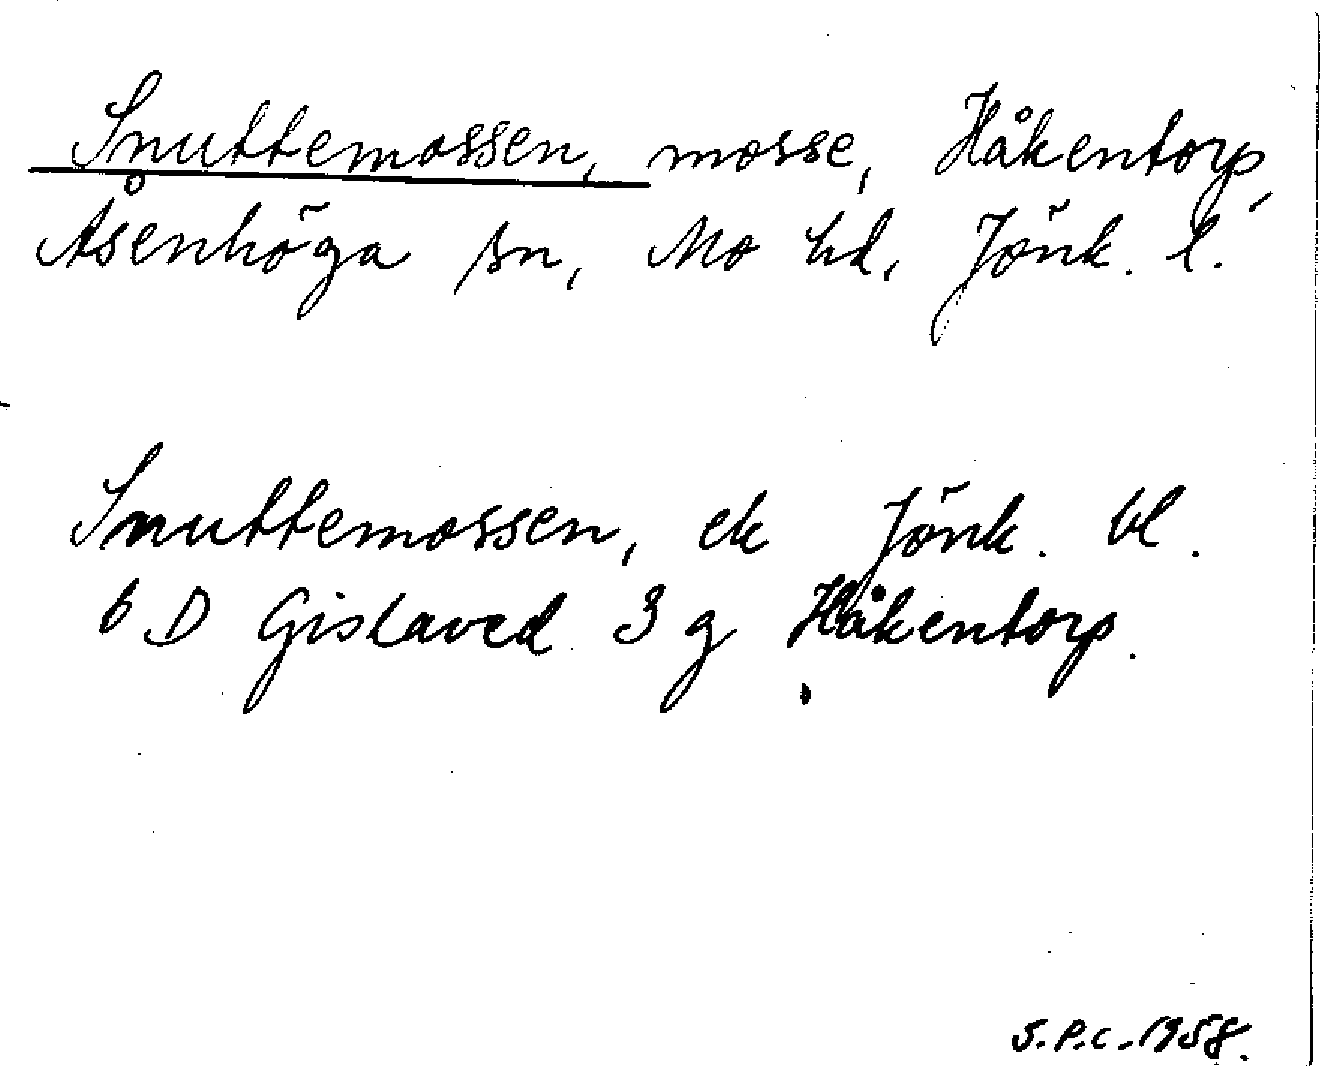 Snuttemossen, mosse, Håkentorp,
Åsenhöga sn, Mo hd, Jönk. l.
Snuttemossen, ek Jönk. bl.
6 D Gislaved 3 g Håkentorp.
S.P.C. 1958.